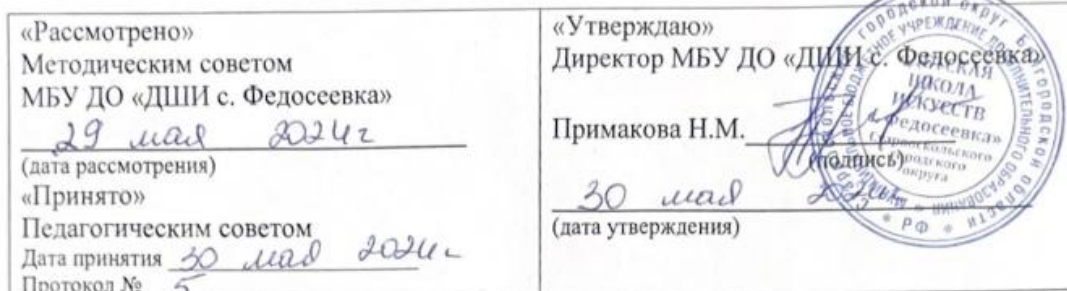 «Рассмотрено»
Методическим советом
МБУ ДО «ДШИ с. Федосеевка»
29 мая 2024г
(дата рассмотрения)
«Принято»
Педагогическим советом
Дата принятия 30 мая 2024г
Протокол № 5
«Утверждаю»
Директор МБУ ДО «ДШИ с. Федосеевка»
Примакова Н.М.
(подпись)
30 мая
(дата утверждения)
ШКОЛА
ИСКУССТВ
Федосеевка»
городского
округа
РФ